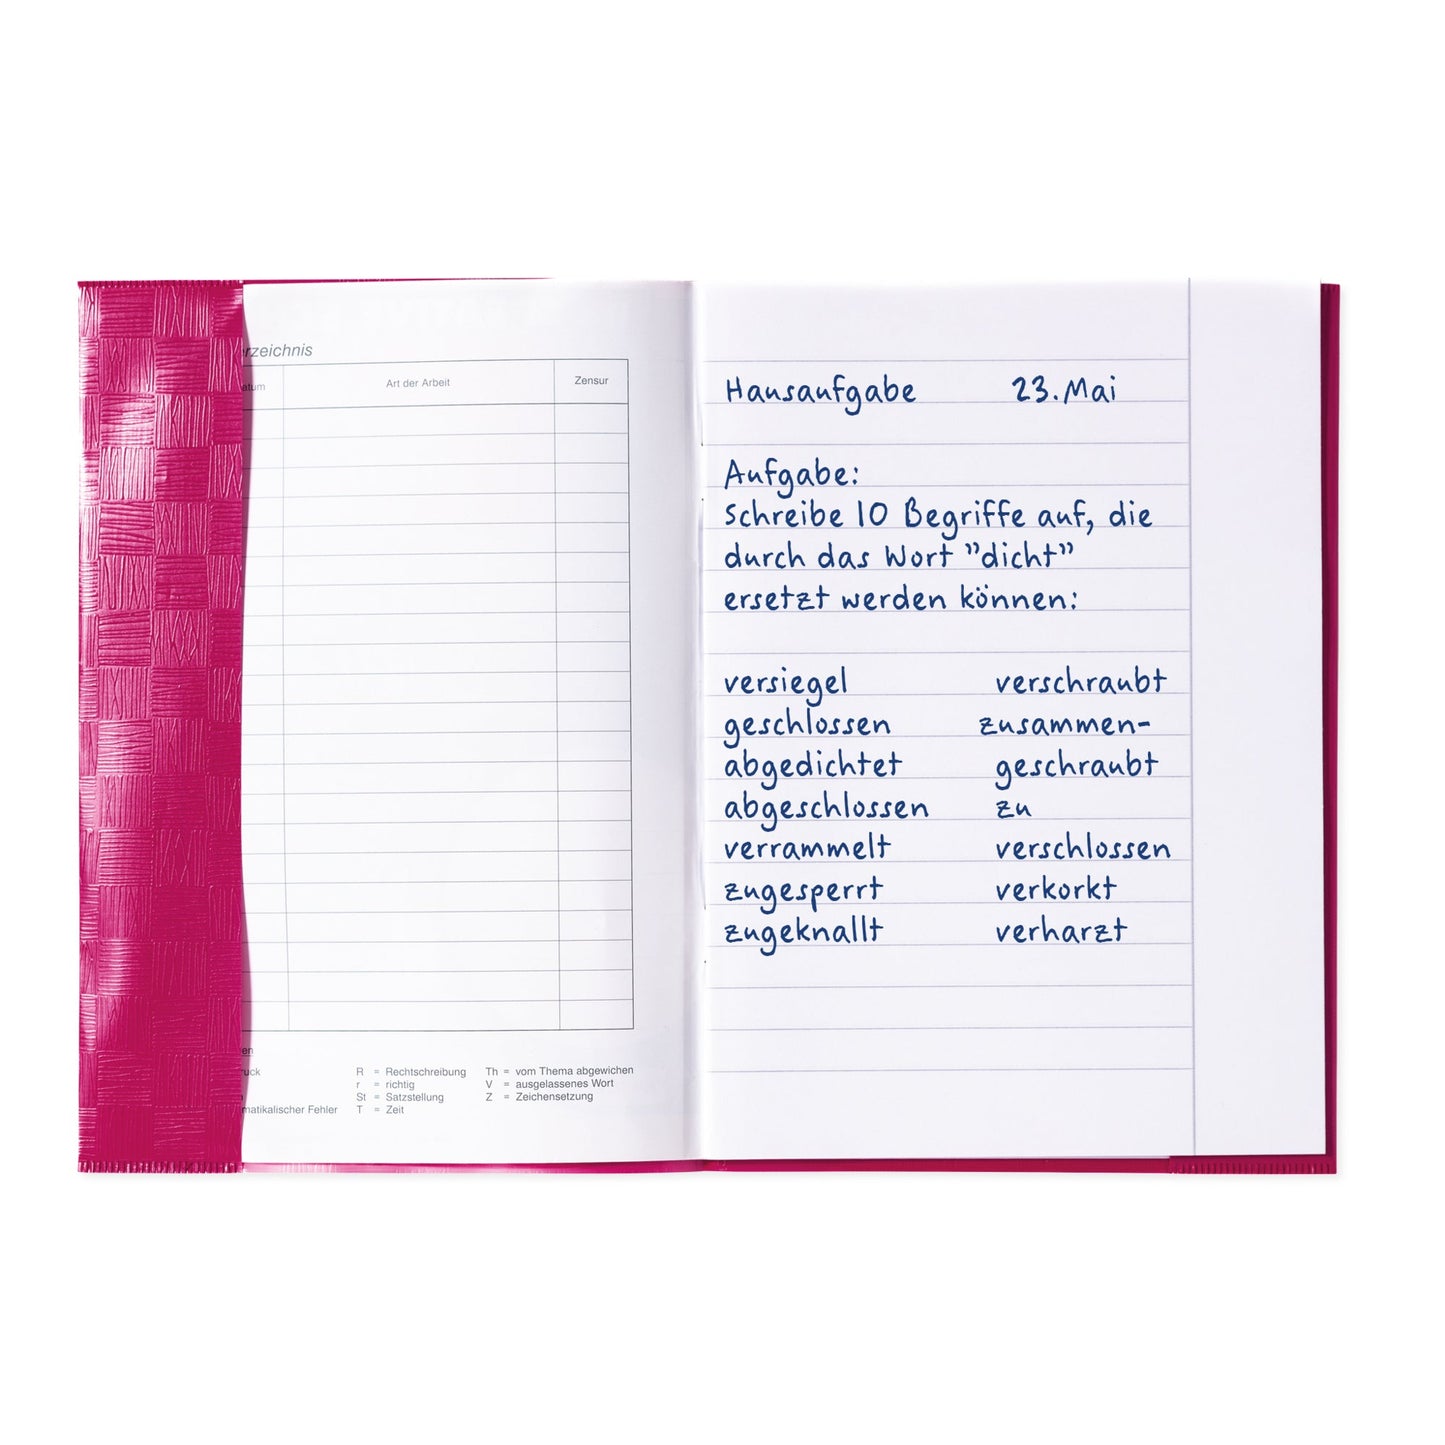 rzeichnis
atum Art der Arbeit Zensur
en
ruck R = Rechtschreibung Th = vom Thema abgewichen
r = richtig V = ausgelassenes Wort
St = Satzstellung Z = Zeichensetzung
matikalischer Fehler T = Zeit
Hausaufgabe 23. Mai
Aufgabe:
Schreibe 10 Begriffe auf, die
durch das Wort ”dicht”
ersetzt werden können:
versiegel verschraubt
geschlossen zusammen-
abgedichtet geschraubt
abgeschlossen zu
verrammelt verschlossen
zugesperrt verkorkt
zugeknallt verharzt